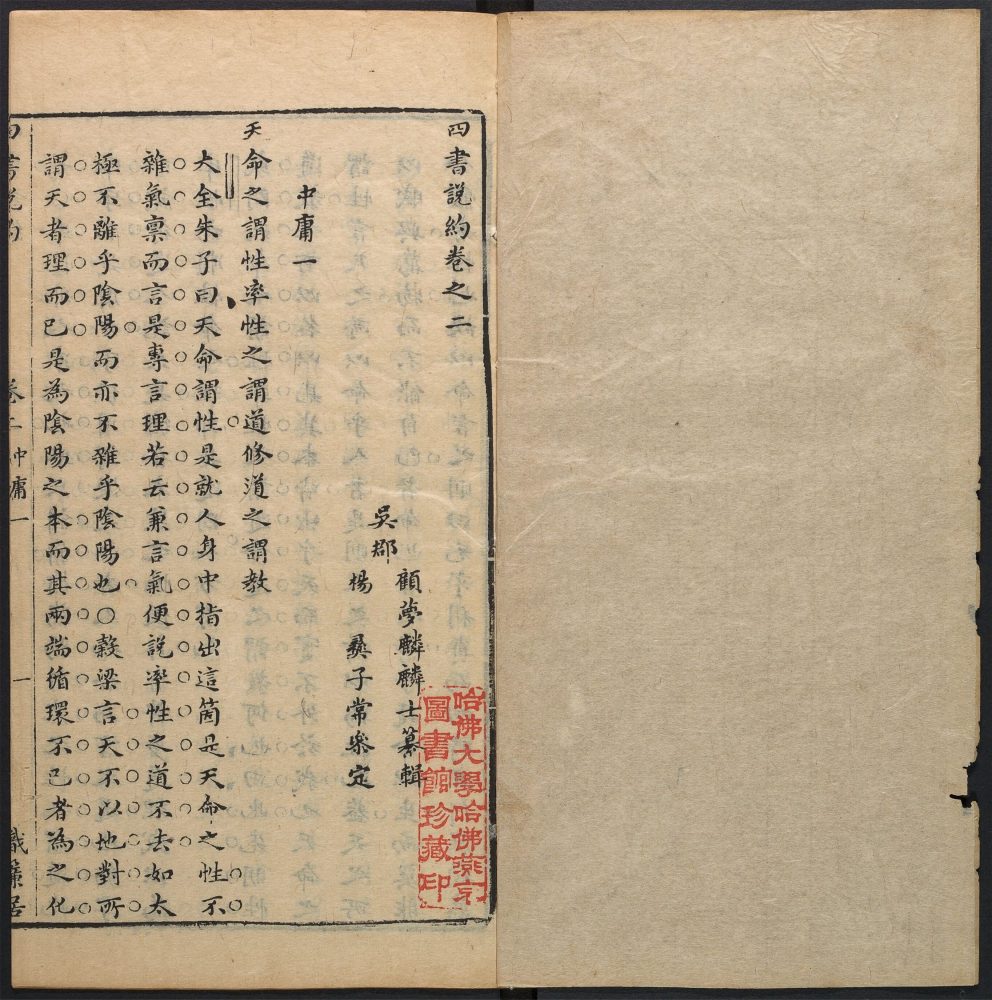 四書説約卷之二
吳郡
顧夢麟麟士纂輯
楊彝子常樂定
中庸一
天命之謂性率性之謂道修道之謂教
大全朱子曰天命謂性是就人身中指出這箇是天命之性不
雜氣禀而言是專言理若云兼言氣便説率性之道不去如太
極不離乎陰陽而亦不雜乎陰陽也○穀梁言天不以地對所
謂天者理而已是為陰陽之本而其兩端循環不已者為之化
四書説約
卷二中庸一
一
織簾居
哈佛大學哈佛燕京
圖書館珍藏印